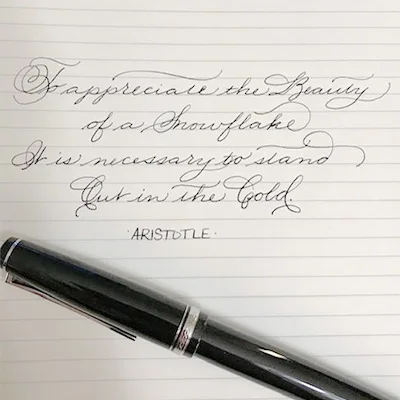 To appreciate the Beauty
of a Snowflake
It is necessary to stand
Out in the Cold.
·ARISTOTLE·